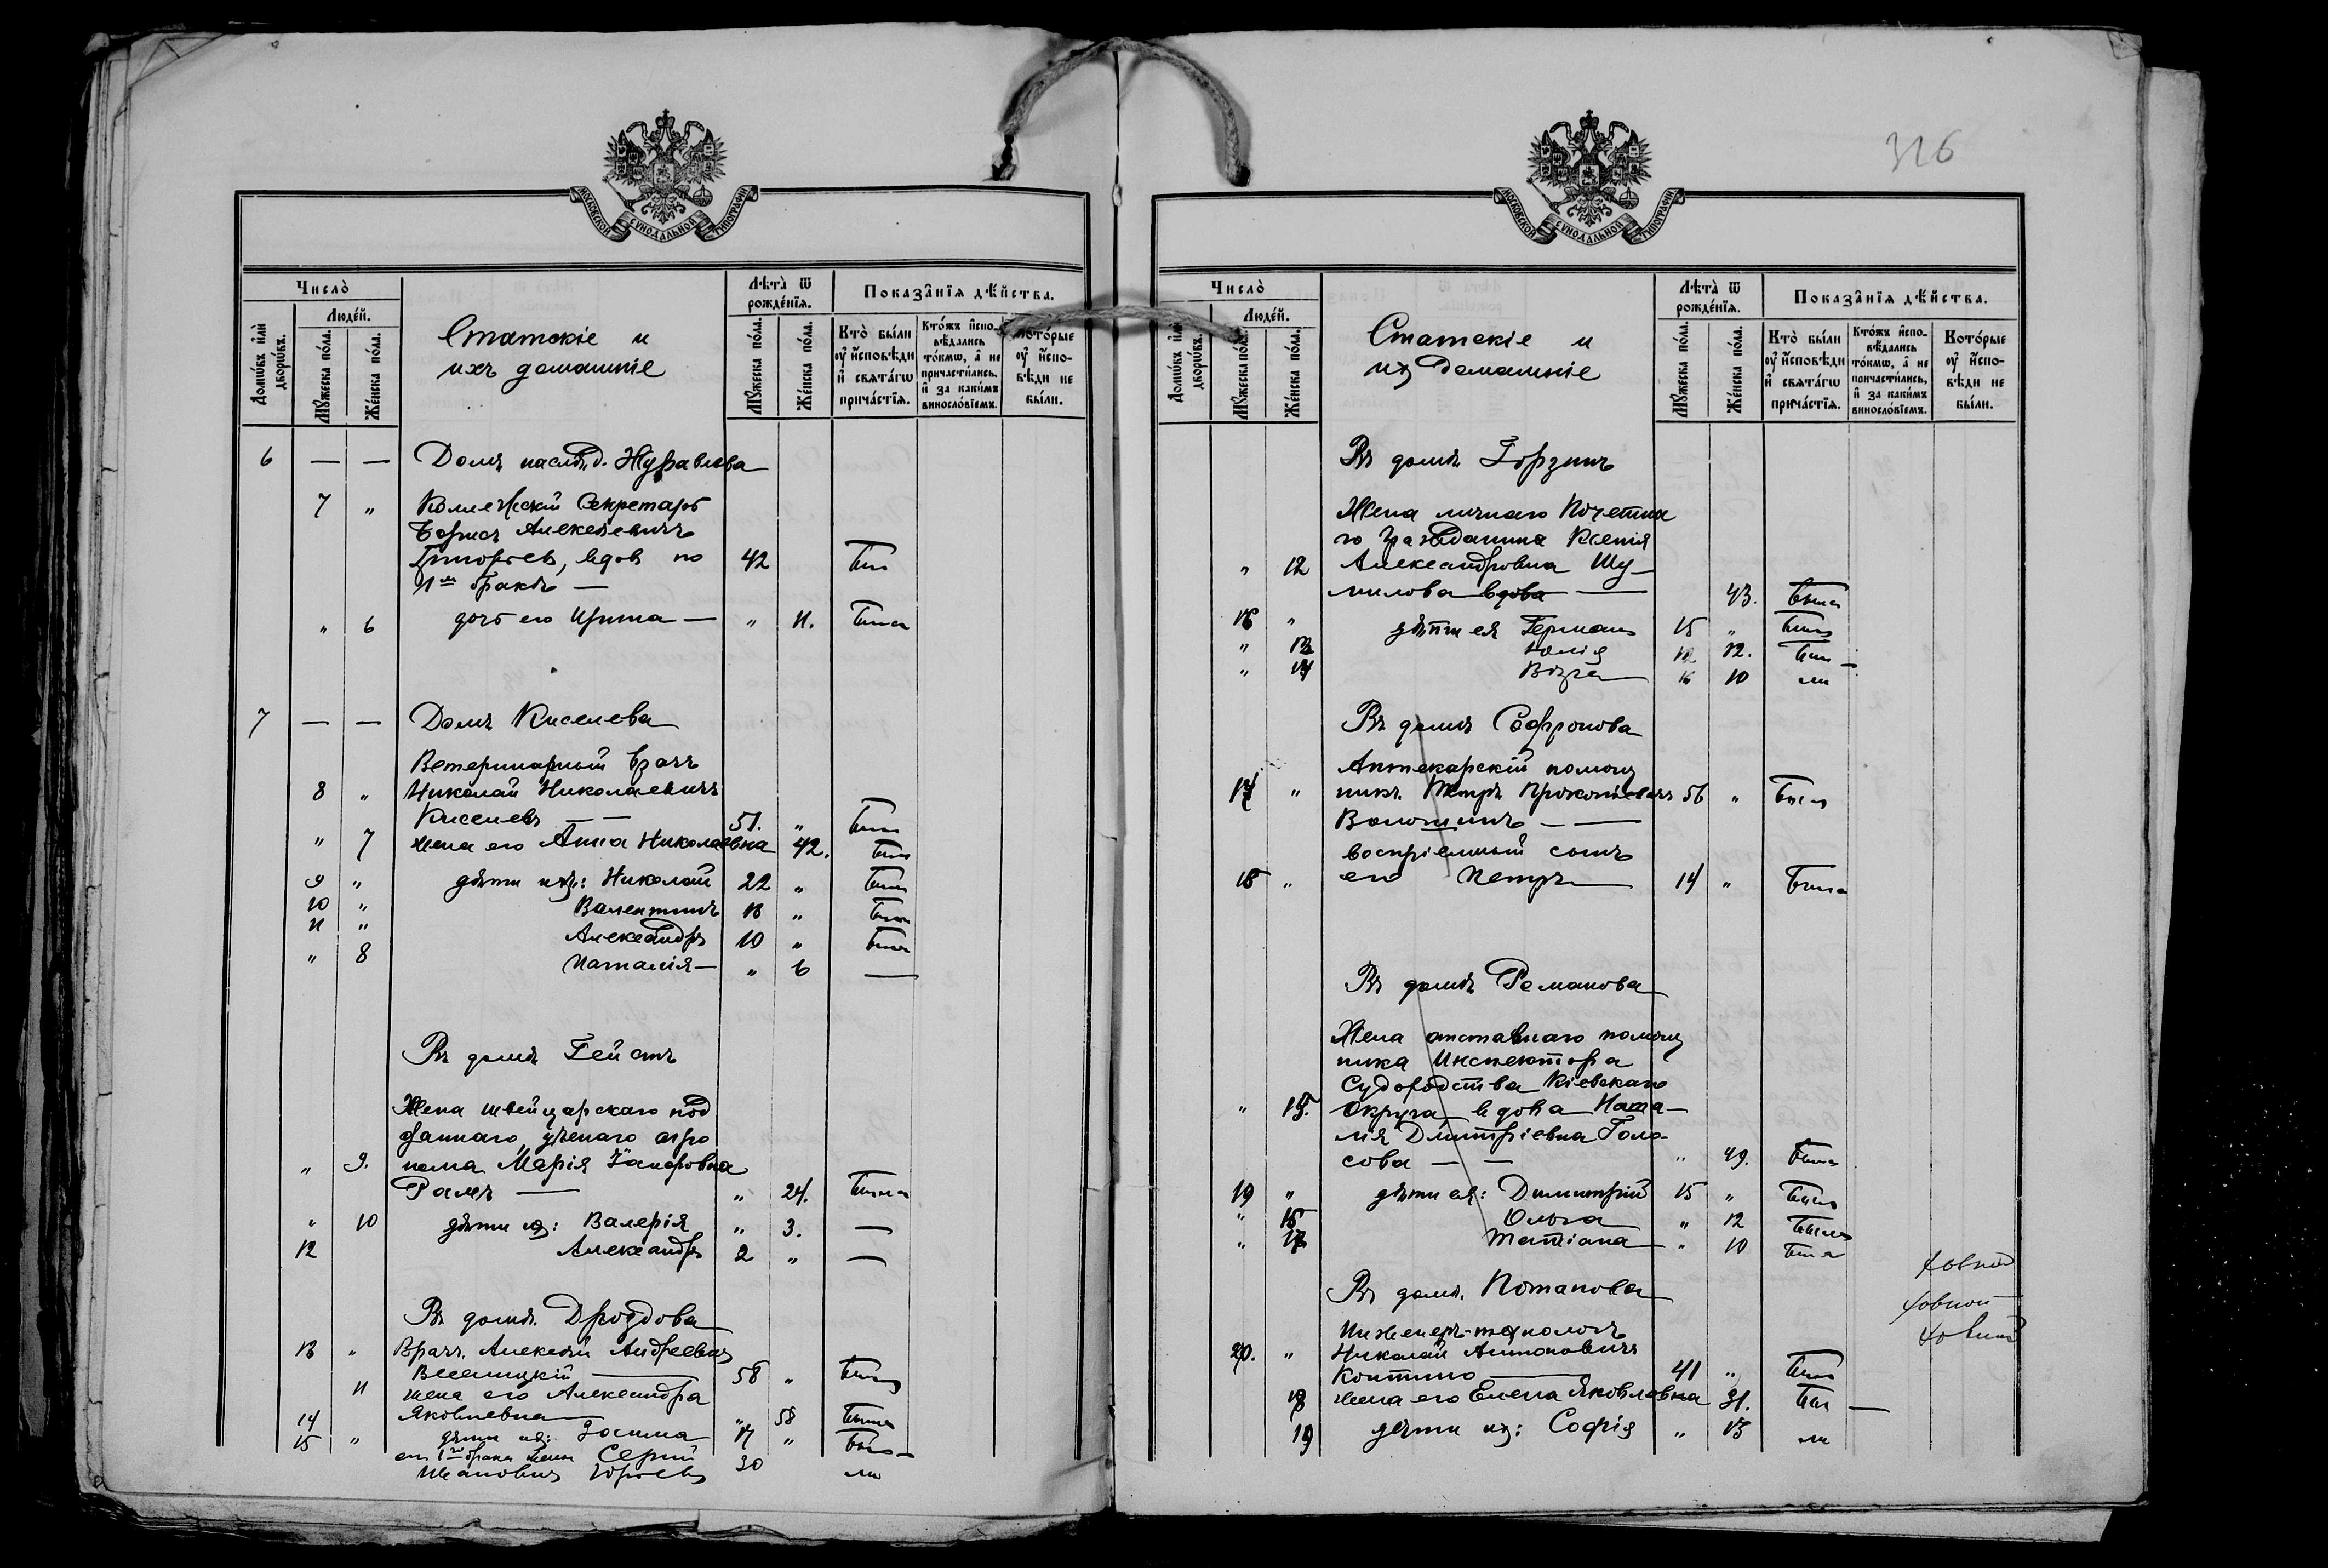 МОСКОВСКОЙ СѴНОДАЛЬНОЙ ТИПОГРАФІИ
Число̀
Людéй.
Домѡ́въ и҆лѝ дворѡ́въ.
Мꙋ́жеска по́ла.
Жéнска по́ла.
Статскіе и
ихъ домашніе
Лѣта̀ ѿ рождéнїѧ.
Мꙋ́жеска по́ла.
Жéнска по́ла.
Показа̑нїѧ дѣ́йства.
Кто̀ бы́ли ᲂу҆ и҆́сповѣди и҆ свѧта́гѡ прича́стїѧ.
Кто́жъ и҆спо-вѣ́дались то́кмѡ, а҆ не причасти́лись, и҆ за каки́мъ винослóвїемъ.
Кото́рые ᲂу҆ и҆́спо-вѣди не бы́ли.
6 — — Домъ наслѣд. Журавлева
7 " Коллежскій Секретарь
Борисъ Алексѣевичъ
Григорьев, вдов по 42 Был
1м бракѣ —
" 6 дочь его Ирина — " 11. Была
7 — — Домъ Киселева
Ветеринарный врачъ
8 " Николай Николаевичъ
Киселевъ — — 51. " Был
" 7 жена его Анна Николаевна 42. Был
9 " дѣти ихъ: Николай 22 " Был
10 " Валентинъ 13 " Был
11 " Александръ 10 " Был
" 8 Наталія — " 6 —
Въ домѣ Гейстъ
Жена швейцарскаго под
даннаго, ученаго агро
" 9. нома Марія
Рамъ — " 24. Была
" 10 дѣти их: Валерія " 3. —
12 Александръ 2 " —
Въ домѣ. Дроздова
13 " Врачъ, Алексѣй Андреевич
— 58 " Был
11 жена его Александра
Яковлевна " 58 Была
14 дѣти их: Зосима 17 " Бы-
15 " от 1го брака жены Сергій
Иванович Юрьевъ 30 ли
326
МОСКОВСКОЙ СѴНОДАЛЬНОЙ ТИПОГРАФІИ
Число̀
Людéй.
Домѡ́въ и҆лѝ дворѡ́въ.
Мꙋ́жеска по́ла.
Жéнска по́ла.
Статскіе и
их домашніе
Лѣта̀ ѿ рождéнїѧ.
Мꙋ́жеска по́ла.
Жéнска по́ла.
Показа̑нїѧ дѣ́йства.
Кто̀ бы́ли ᲂу҆ и҆́сповѣди и҆ свѧта́гѡ прича́стїѧ.
Кто́жъ и҆спо-вѣ́дались то́кмѡ, а҆ не причасти́лись, и҆ за каки́мъ винослóвїемъ.
Кото́рые ᲂу҆ и҆́спо-вѣди не бы́ли.
Въ домѣ Горзинъ
Жена личнаго Почетна
го Гражданина Ксенія
" 12 Александровна Шу-
милова вдова — 43. Была
16 " дѣти ея Герман 15 " Был
" 13 Юлія 12. Бы-
" 14 Вѣра 10 ли
Въ домѣ Софронова
Аптекарскій помощ
17 " никъ Петръ Прокопіевичъ 56 " Был
Волошинъ — —
воспріемный сынъ
18 " его Петръ 14 " Был
Въ домѣ Романова
Жена отставнаго помощ
ника Инспектора
Судоходства Кіевскаго
" 15. Округа вдова Ната-
лія Дмитріевна Голо-
сова — — " 49. Была
19 " дѣти ея: Димитрій 15 " Был
" 16 Ольга " 12 Была
" 17 Татіана " 10 Была
Въ домѣ. Потапова
Инженеръ-технологъ
20. " Николай Антоновичъ
— 41 " Был
18 жена его Елена Яковлевна 31. Бы —
19 дѣти их: Софія " 13 ли